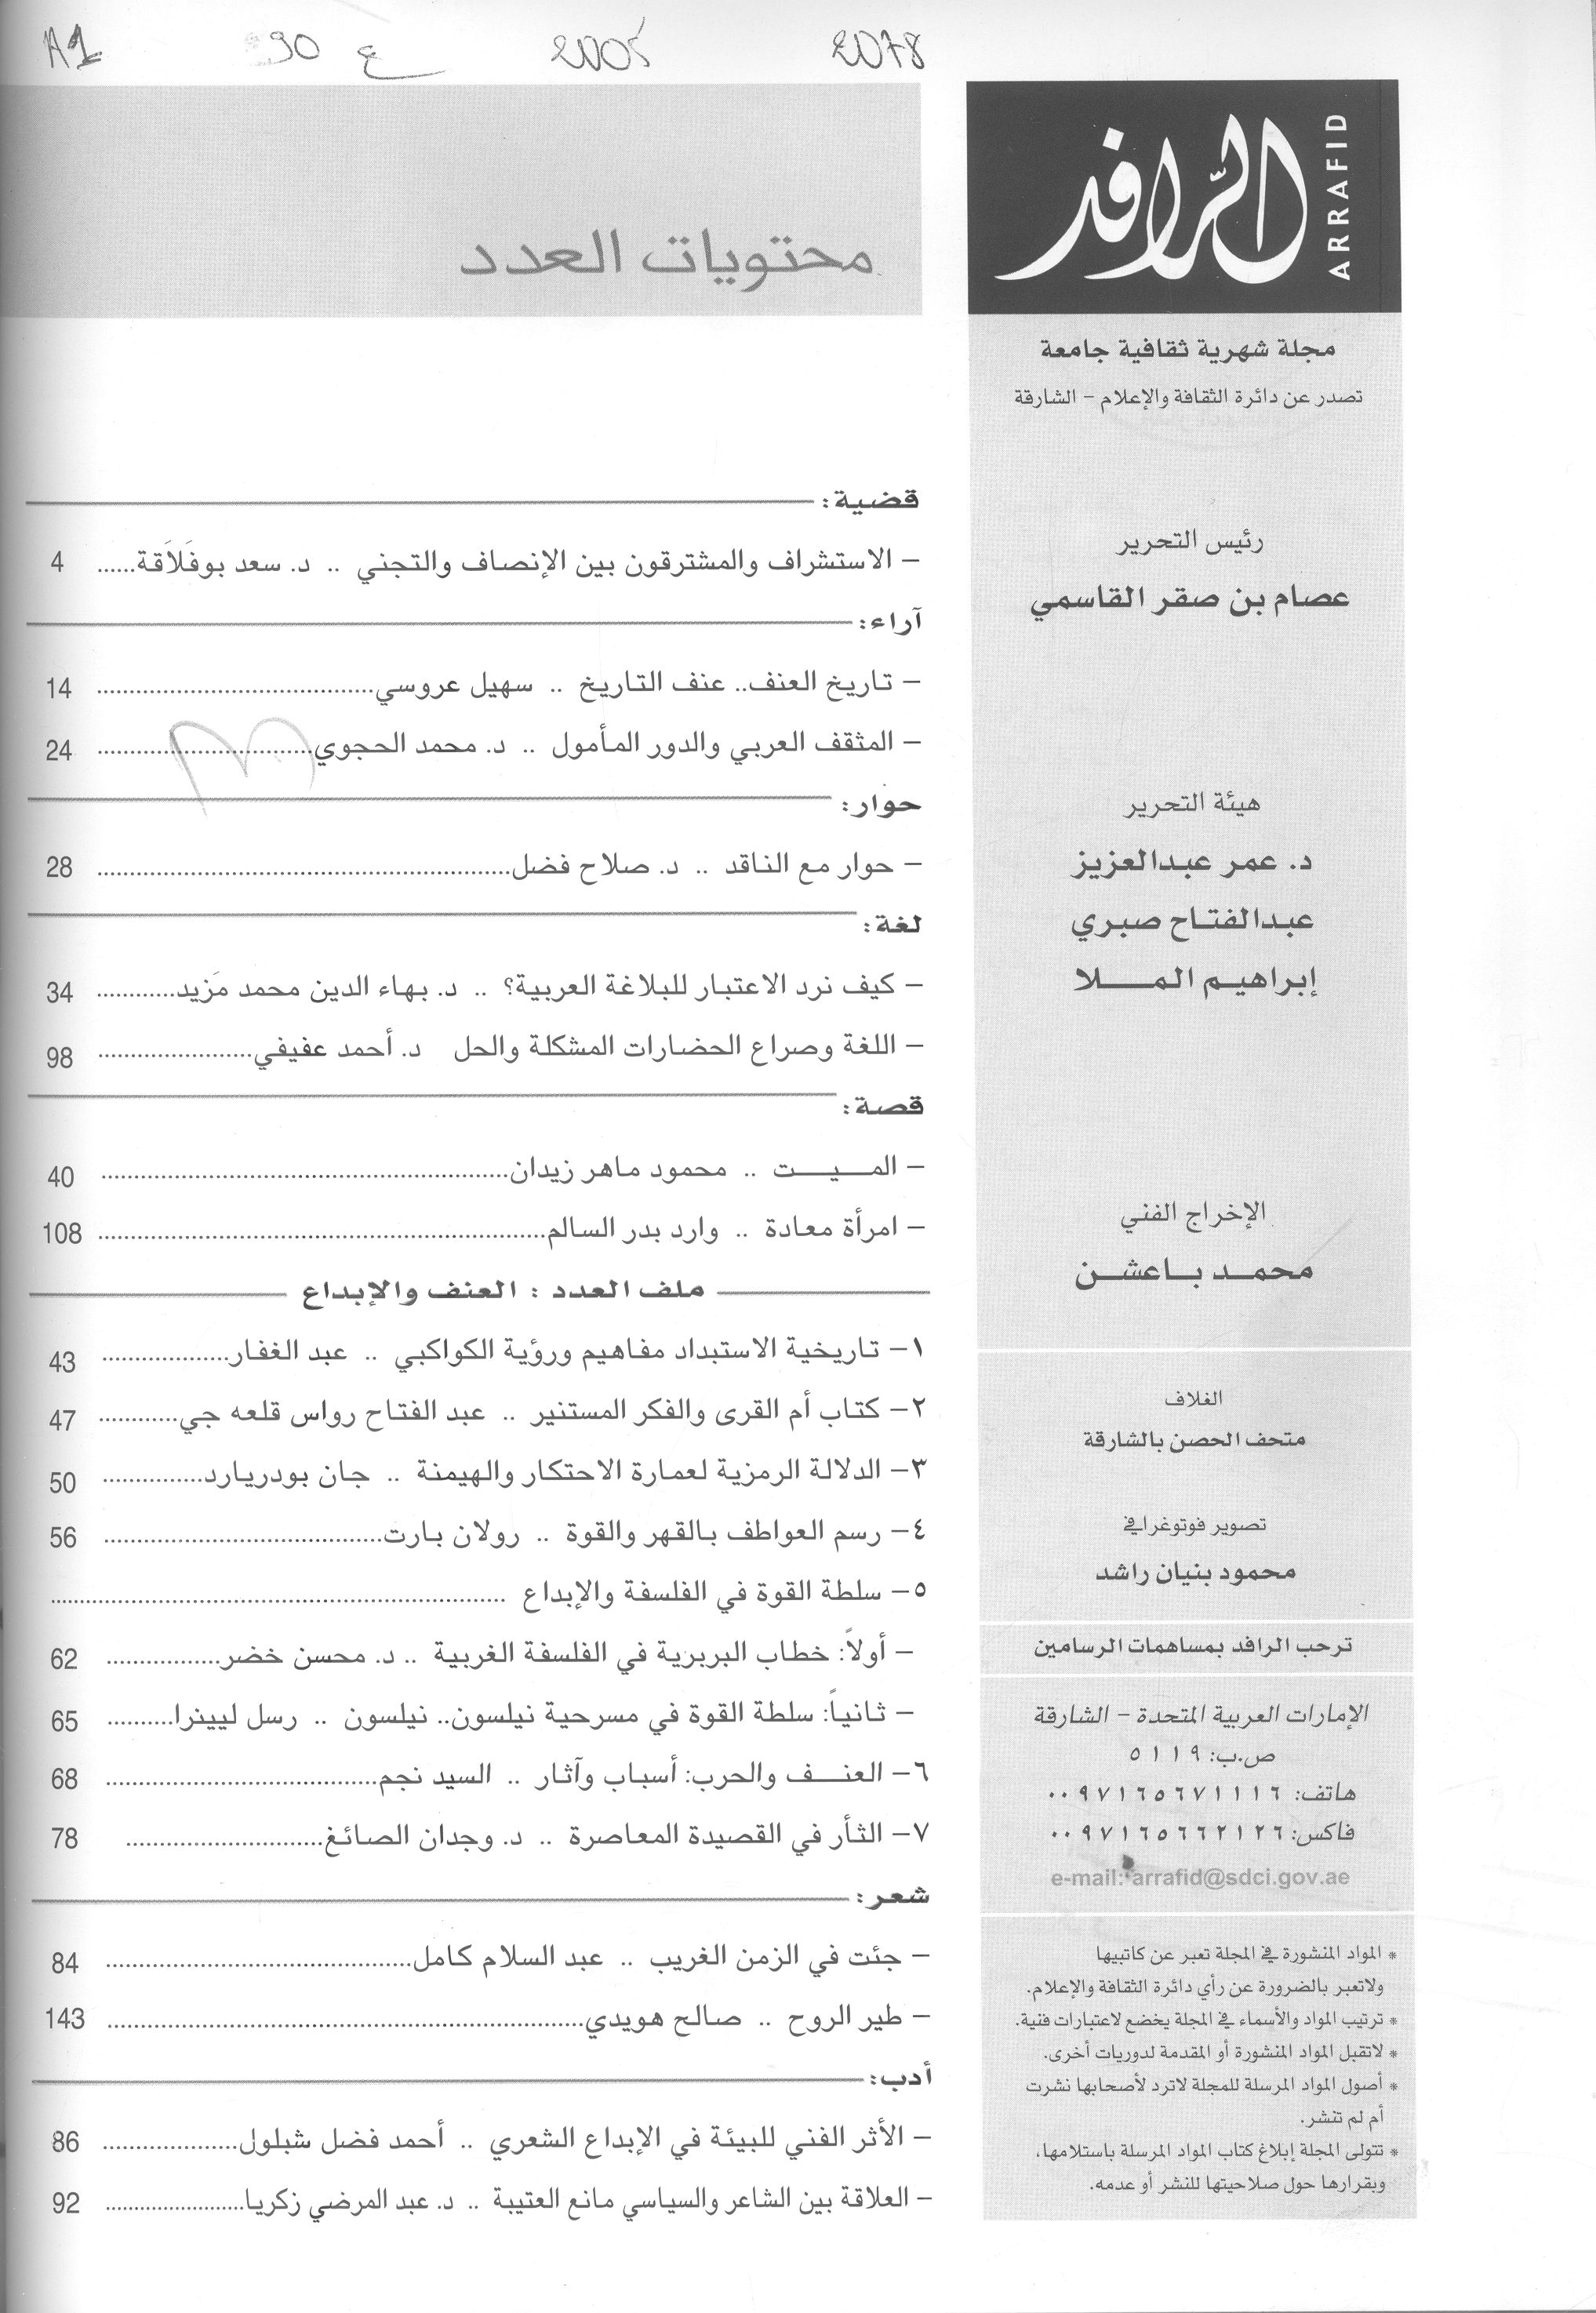 A1 90 ع 2005 2078
الرافد
ARRAFID
مجلة شهرية ثقافية جامعة
تصدر عن دائرة الثقافة والإعلام - الشارقة
رئيس التحرير
عصام بن صقر القاسمي
هيئة التحرير
د. عمر عبدالعزيز
عبدالفتاح صبري
إبراهيم الملا
الإخراج الفني
محمد باعشن
الغلاف
متحف الحصن بالشارقة
تصوير فوتوغرافي
محمود بنيان راشد
ترحب الرافد بمساهمات الرسامين
الإمارات العربية المتحدة - الشارقة
ص.ب: ٥١١٩
هاتف: ٠٠٩٧١٦٥٦٧١١١٦
فاكس: ٠٠٩٧١٦٥٦٦٢١٢٦
e-mail: arrafid@sdci.gov.ae
* المواد المنشورة في المجلة تعبر عن كاتبيها
ولاتعبر بالضرورة عن رأي دائرة الثقافة والإعلام.
* ترتيب المواد والأسماء في المجلة يخضع لاعتبارات فنية.
* لاتقبل المواد المنشورة أو المقدمة لدوريات أخرى.
* أصول المواد المرسلة للمجلة لاترد لأصحابها نشرت
أم لم تنشر.
* تتولى المجلة إبلاغ كتاب المواد المرسلة باستلامها،
وبقرارها حول صلاحيتها للنشر أو عدمه.
محتويات العدد
قضية:
- الاستشراف والمشترقون بين الإنصاف والتجني .. د. سعد بوفَلاَقة...... 4
آراء:
- تاريخ العنف.. عنف التاريخ .. سهيل عروسي...... 14
- المثقف العربي والدور المأمول .. د. محمد الحجوي...... 24
حوار:
- حوار مع الناقد .. د. صلاح فضل...... 28
لغة:
- كيف نرد الاعتبار للبلاغة العربية؟ .. د. بهاء الدين محمد مَزيد...... 34
- اللغة وصراع الحضارات المشكلة والحل د. أحمد عفيفي...... 98
قصة:
- الميت .. محمود ماهر زيدان...... 40
- امرأة معادة .. وارد بدر السالم...... 108
ملف العدد : العنف والإبداع
١- تاريخية الاستبداد مفاهيم ورؤية الكواكبي .. عبد الغفار...... 43
٢- كتاب أم القرى والفكر المستنير .. عبد الفتاح رواس قلعه جي...... 47
٣- الدلالة الرمزية لعمارة الاحتكار والهيمنة .. جان بودريارد...... 50
٤- رسم العواطف بالقهر والقوة .. رولان بارت...... 56
٥- سلطة القوة في الفلسفة والإبداع ......
- أولاً: خطاب البربرية في الفلسفة الغربية .. د. محسن خضر...... 62
- ثانياً: سلطة القوة في مسرحية نيلسون.. نيلسون .. رسل ليينرا...... 65
٦- العنف والحرب: أسباب وآثار .. السيد نجم...... 68
٧- الثأر في القصيدة المعاصرة .. د. وجدان الصائغ...... 78
شعر:
- جئت في الزمن الغريب .. عبد السلام كامل...... 84
- طير الروح .. صالح هويدي...... 143
أدب:
- الأثر الفني للبيئة في الإبداع الشعري .. أحمد فضل شبلول...... 86
- العلاقة بين الشاعر والسياسي مانع العتيبة .. د. عبد المرضي زكريا...... 92